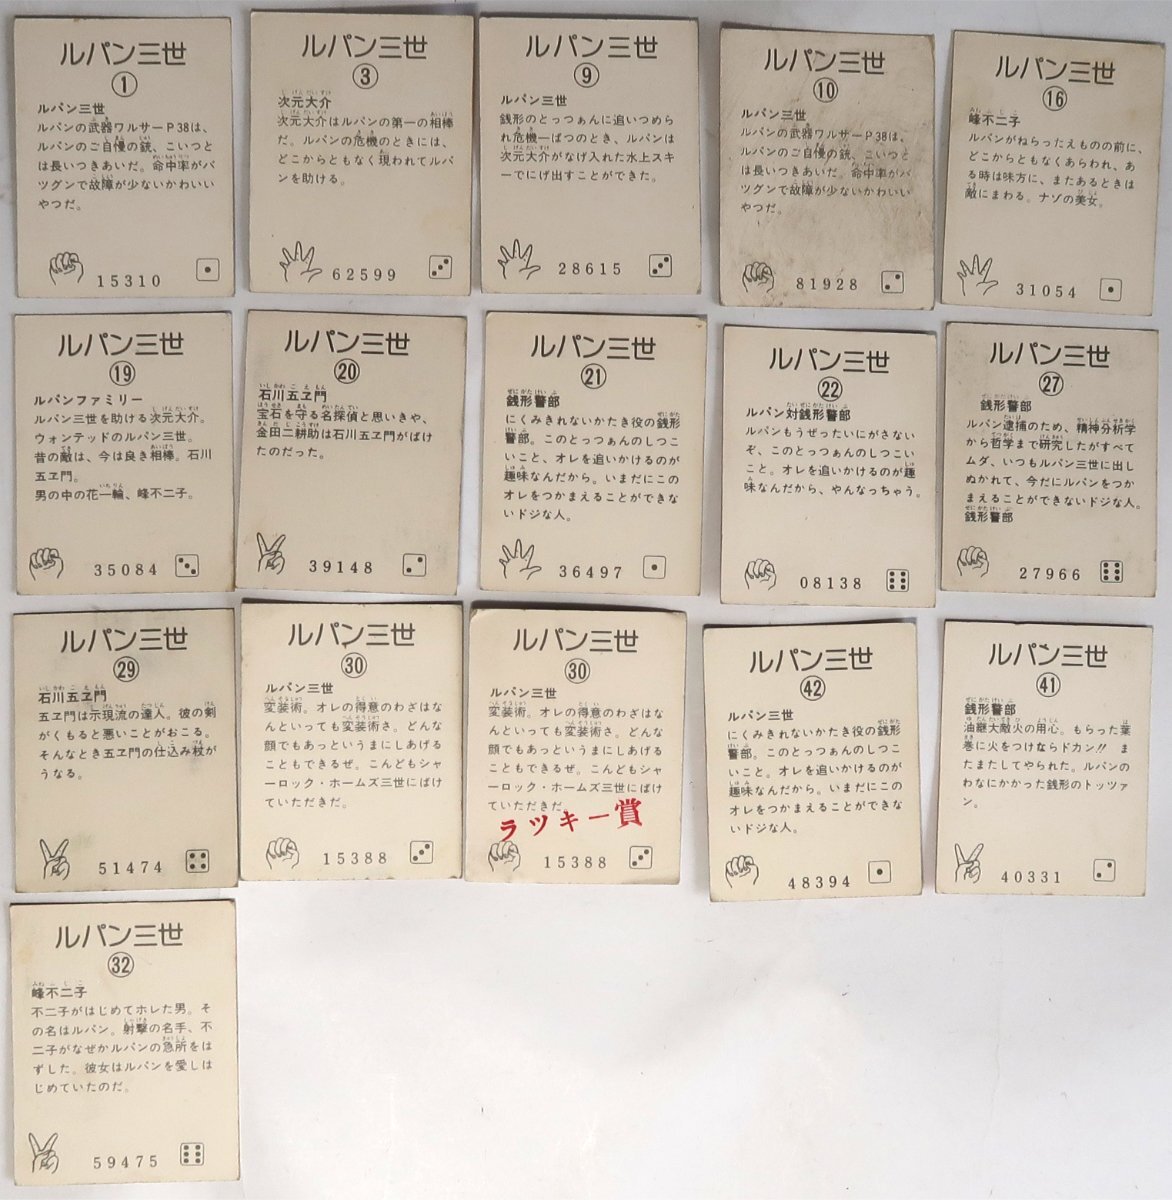 ルパン三世
①
ルパン三世
ルパンの武器ワルサーP38は、
ルパンのご自慢の銃、こいつと
は長いつきあいだ。命中率がバ
ツグンで故障が少ないかわいい
やつだ。
15310
ルパン三世
③
次元大介
次元大介はルパンの第一の相棒
だ。ルパンの危機のときには、
どこからともなく現われてルパ
ンを助ける。
62599
ルパン三世
⑨
ルパン三世
銭形のとっつぁんに追いつめら
れ危機一ぱつのとき、ルパンは
次元大介がなげ入れた水上スキ
ーでにげ出すことができた。
28615
ルパン三世
⑩
ルパン三世
ルパンの武器ワルサーP38は、
ルパンのご自慢の銃、こいつと
は長いつきあいだ。命中率がバ
ツグンで故障が少ないかわいい
やつだ。
81928
ルパン三世
⑯
峰不二子
ルパンがねらったえものの前に、
どこからともなくあらわれ、あ
る時は味方に、またあるときは
敵にまわる。ナゾの美女。
31054
ルパン三世
⑲
ルパンファミリー
ルパン三世を助ける次元大介。
ウォンテッドのルパン三世。
昔の敵は、今は良き相棒。石川
五ヱ門。
男の中の花一輪、峰不二子。
35084
ルパン三世
⑳
石川五ヱ門
宝石を守る名探偵と思いきや、
金田二耕助は石川五ヱ門がばけ
たのだった。
39148
ルパン三世
㉑
銭形警部
にくみきれないかたき役の銭形
警部。このとっつぁんのしつこ
いこと、オレを追いかけるのが
趣味なんだから。いまだにこの
オレをつかまえることができな
いドジな人。
36497
ルパン三世
㉒
ルパン対銭形警部
ルパンもうぜったいにがさない
ぞ、このとっつぁんのしつこい
こと。オレを追いかけるのが趣
味なんだから、やんなっちゃう。
08138
ルパン三世
㉗
銭形警部
ルパン逮捕のため、精神分析学
から哲学まで研究したがすべて
ムダ、いつもルパン三世に出し
ぬかれて、今だにルパンをつか
まえることができないドジな人。
銭形警部
27966
ルパン三世
㉙
石川五ヱ門
五ヱ門は示現流の達人。彼の剣
がくもると悪いことがおこる。
そんなとき五ヱ門の仕込み杖が
うなる。
51474
ルパン三世
㉚
ルパン三世
変装術。オレの得意のわざはな
んといっても変装術さ。どんな
顔でもあっというまにしあげる
こともできるぜ。こんどもシャ
ーロック・ホームズ三世にばけ
ていただきだ。
15388
ルパン三世
㉚
ルパン三世
変装術。オレの得意のわざはな
んといっても変装術さ。どんな
顔でもあっというまにしあげる
こともできるぜ。こんどもシャ
ーロック・ホームズ三世にばけ
ていただきだ。
ラツキー賞
15388
ルパン三世
㊷
ルパン三世
にくみきれないかたき役の銭形
警部。このとっつぁんのしつこ
いこと。オレを追いかけるのが
趣味なんだから。いまだにこの
オレをつかまえることができな
いドジな人。
48394
ルパン三世
㊶
銭形警部
油継大敵火の用心。もらった葉
巻に火をつけならドカン!! ま
たまたしてやられた。ルパンの
わなにかかった銭形のトッツァ
ン。
40331
ルパン三世
㉜
峰不二子
不二子がはじめてホレた男。そ
の名はルパン。射撃の名手、不
二子がなぜかルパンの急所をは
ずした。彼女はルパンを愛しは
じめていたのだ。
59475